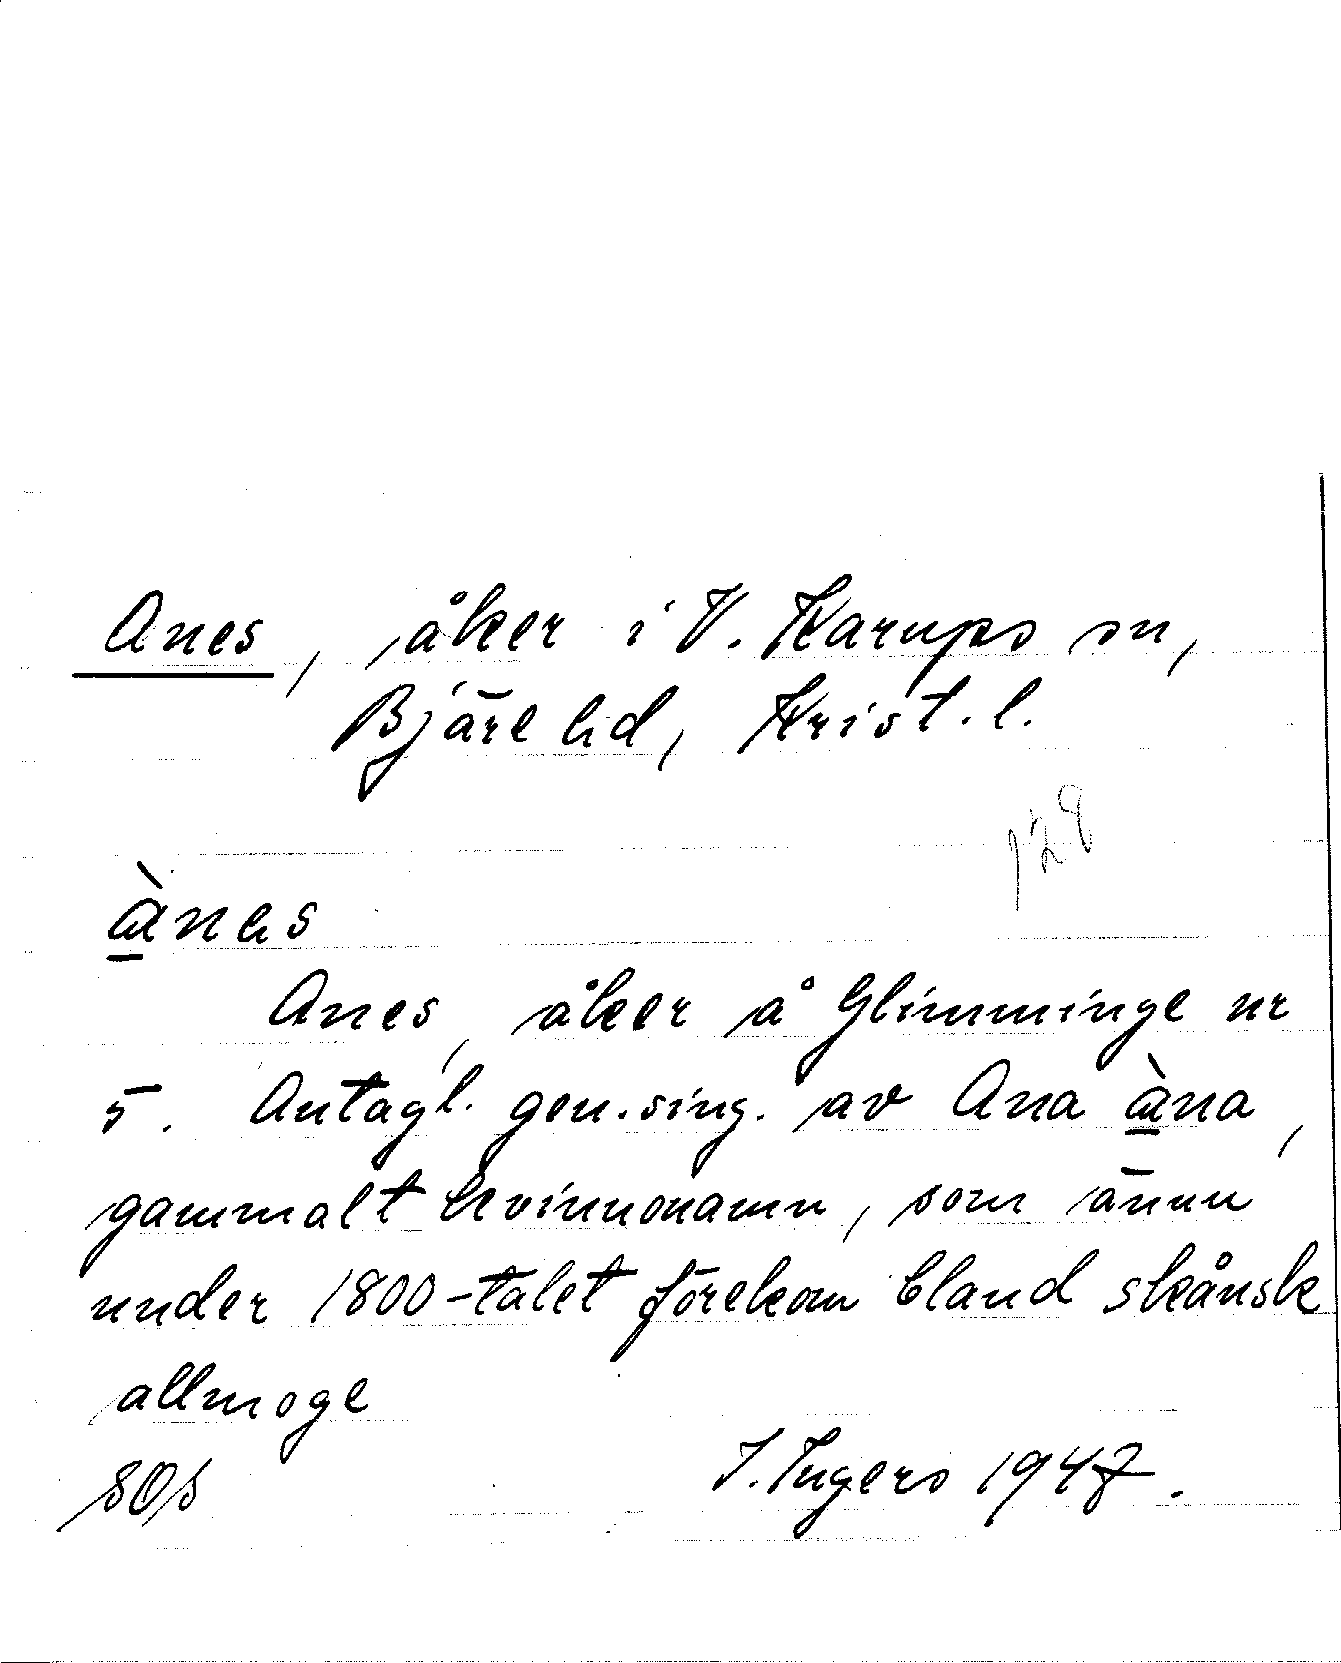 Anes, åker i V. Karups sn,
Bjäre hd, Krist. l.
128
ànes
Anes, åker å Glimminge nr
5. Antagl. gen. sing. av Ana àna,
gammalt kvinnonamn, som ännu
under 1800-talet förekom bland skånsk
allmoge
SOS
I. Ingers 1947.